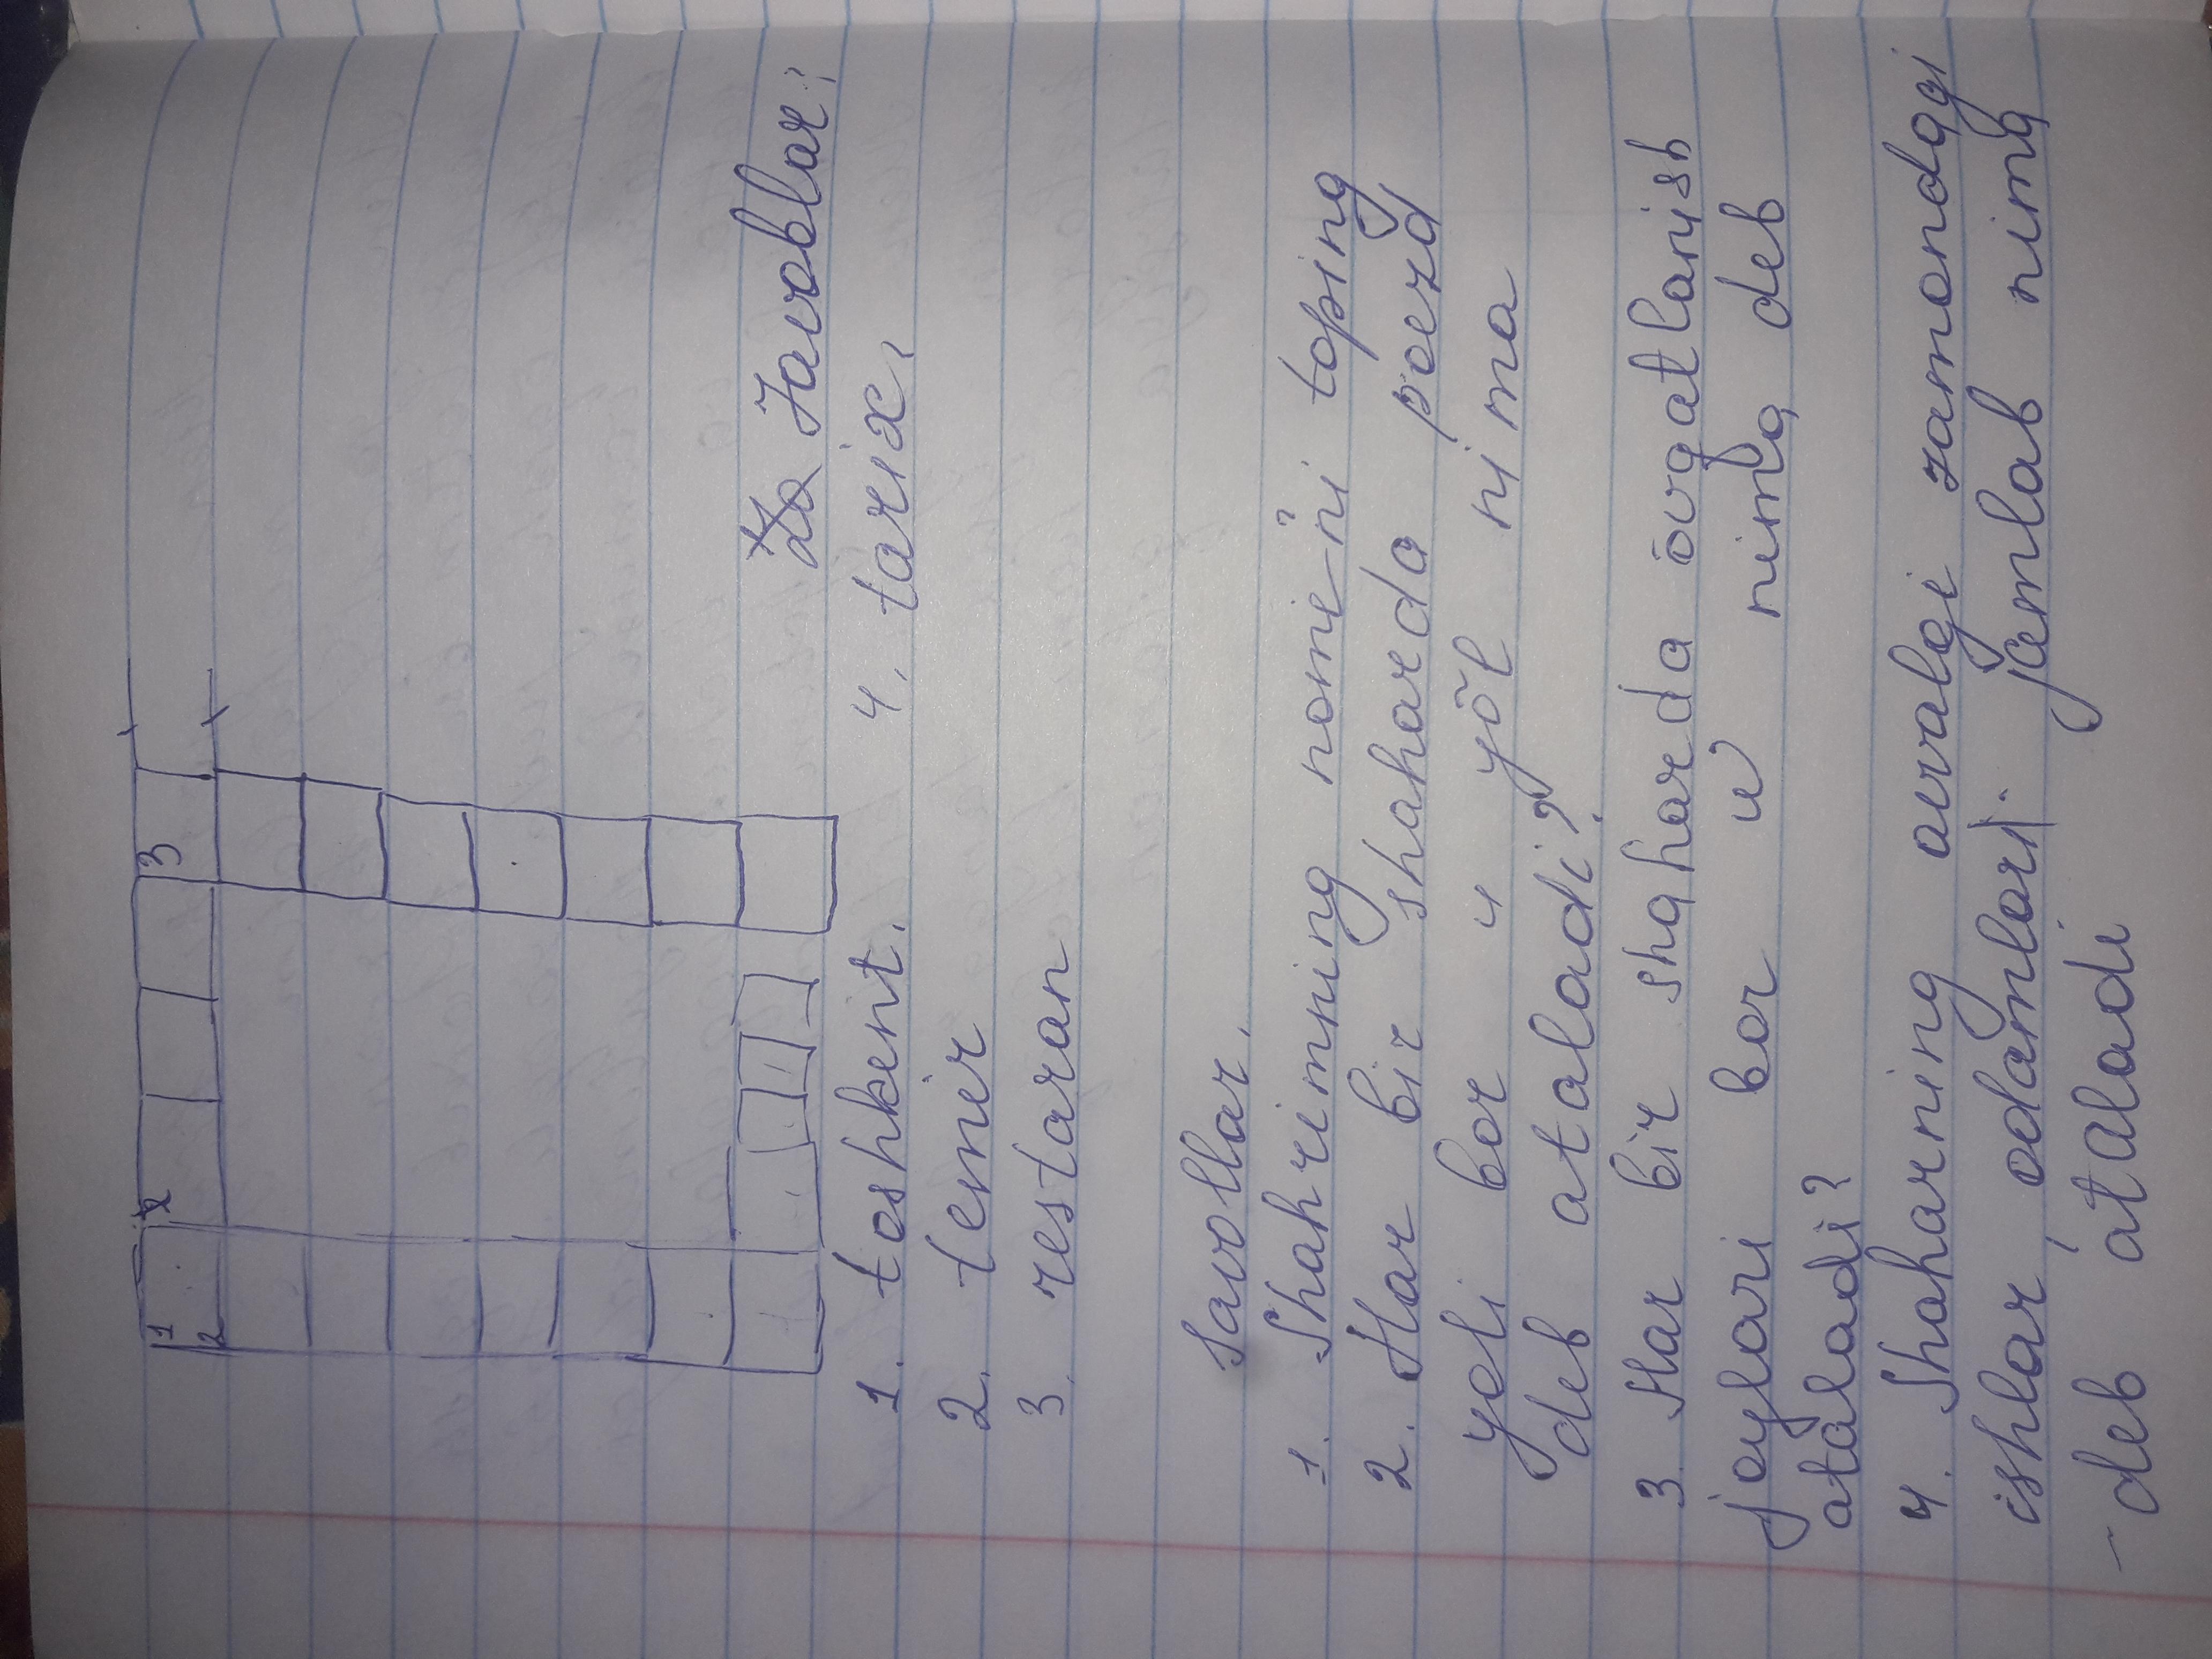 1 2 3
2
Javoblar:
1. toshkent. 4. tarix.
2. temir
3. restaran
Savollar.
1. Shahrimning nomi-ni toping
2. Har bir shaharda poezd
yoli bor u yõl nima
deb ataladi?
3 Har bir shaharda ovqatlanish
joylari bor u nima deb
ataladi?
4. Shaharning avvalgi zamondagi
ishlar, odamlari. jamlab nima
- deb ataladi